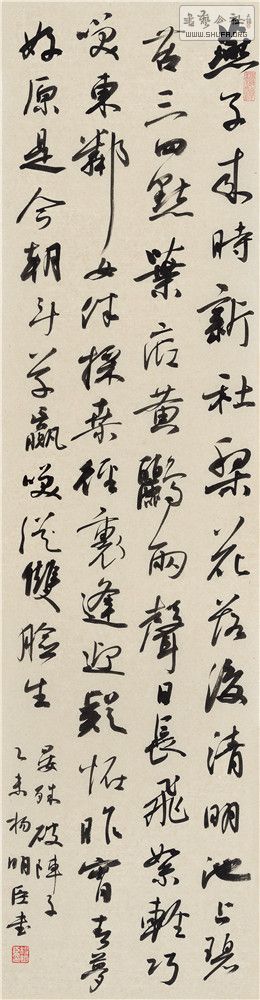 燕子来時新社梨花落後清明池上碧
苔三四點葉底黄鸝兩聲日長飛絮輕巧
笑東鄰女伴採桑徑裏逢迎疑怪昨宵春夢
好原是今朝斗草贏笑從雙臉生
晏殊破陣子
乙未楊明臣書
WWW.SHUFA.ORG